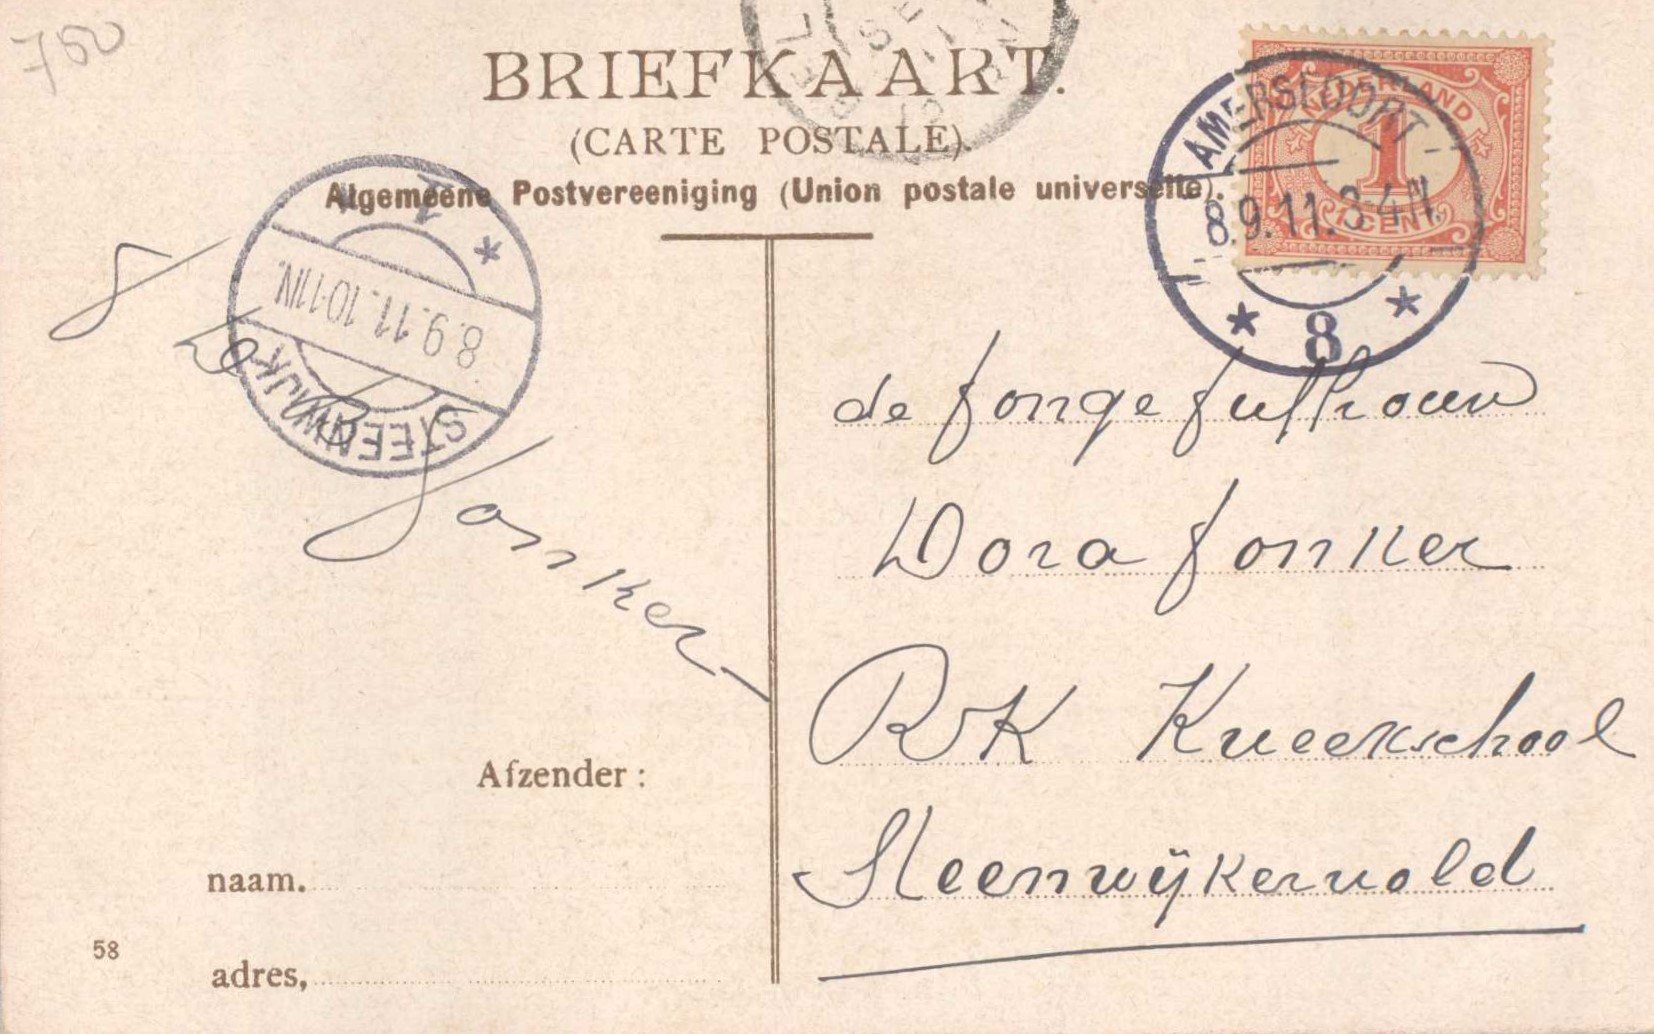 750
BRIEFKAART.
(CARTE POSTALE).
Algemeene Postvereeniging (Union postale universelle).
NEDERLAND
1
1 CENT
AMERSFOORT
8.9.11.3-4N.
* 8 *
STEENWIJK
8.9.11.10-11N.
*
Jonker
de Jongejuffrouw
Dora Jonker
RK Kweekschool
Steenwijkerwold
Afzender:
naam.
58
adres,